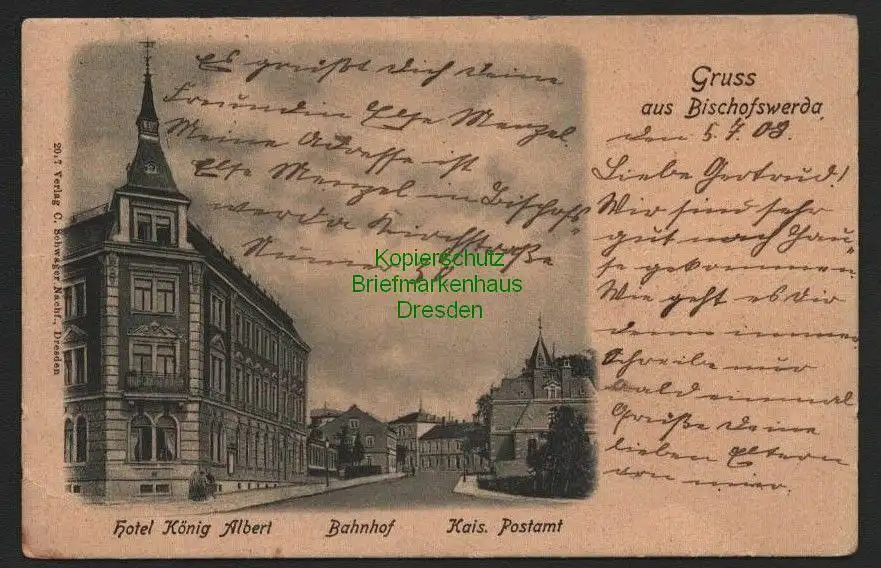 Gruss
aus Bischofswerda
den 5.7.08.
Liebe Gertrud!
Wir sind sehr
gut nach Hau-
se gekommen.
Wie geht es dir
denn immer
schreibe nur
bald einmal
Grüße deine
lieben Eltern
von mir.
Es grüßt dich deine
Freundin Else Menzel.
Meine Adresse ist
Else Menzel in Bischofs-
werda Kirchstraße
Nummer
Kopierschutz
Briefmarkenhaus
Dresden
20,7 Verlag C. Schwager Nachf., Dresden
Hotel König Albert
Bahnhof
Kais. Postamt